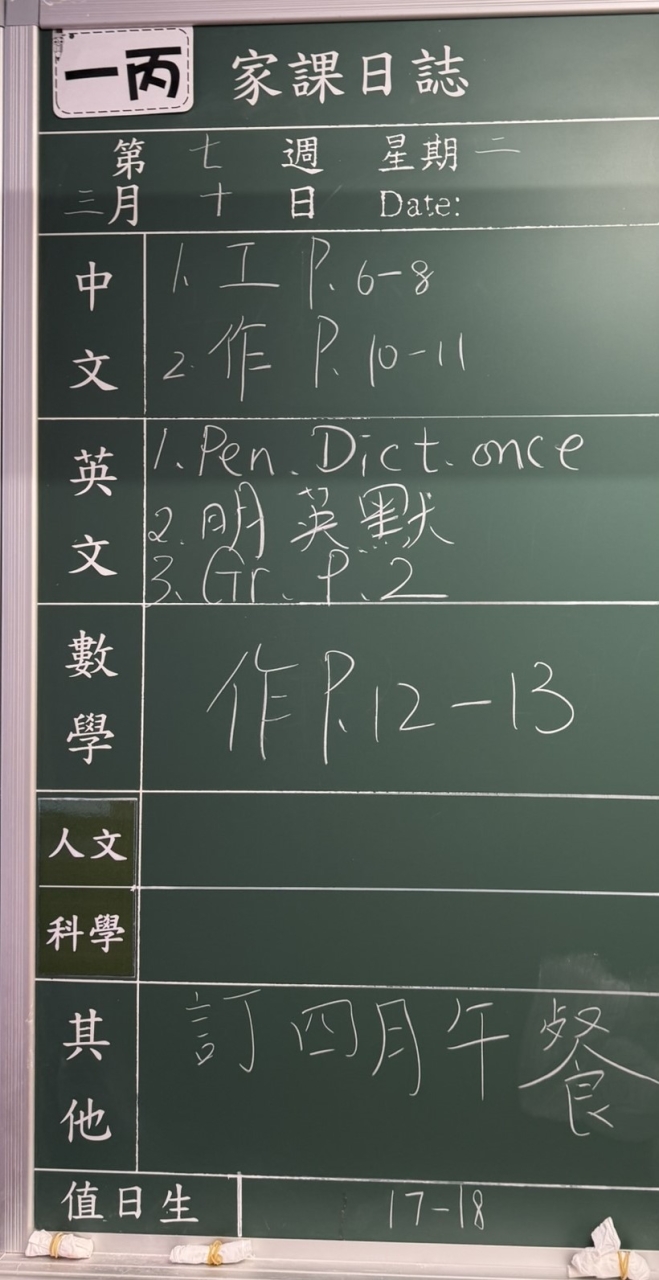 一丙 家課日誌
第 七 週 星期 二
三月 十 日 Date:
中文
1. 工 P. 6-8
2. 作 P. 10-11
英文
1. Pen. Dict. once
2. 明英默
3. Gr. P. 2
數學
作 P. 12-13
人文
科學
其他
訂四月午餐
值日生 17-18